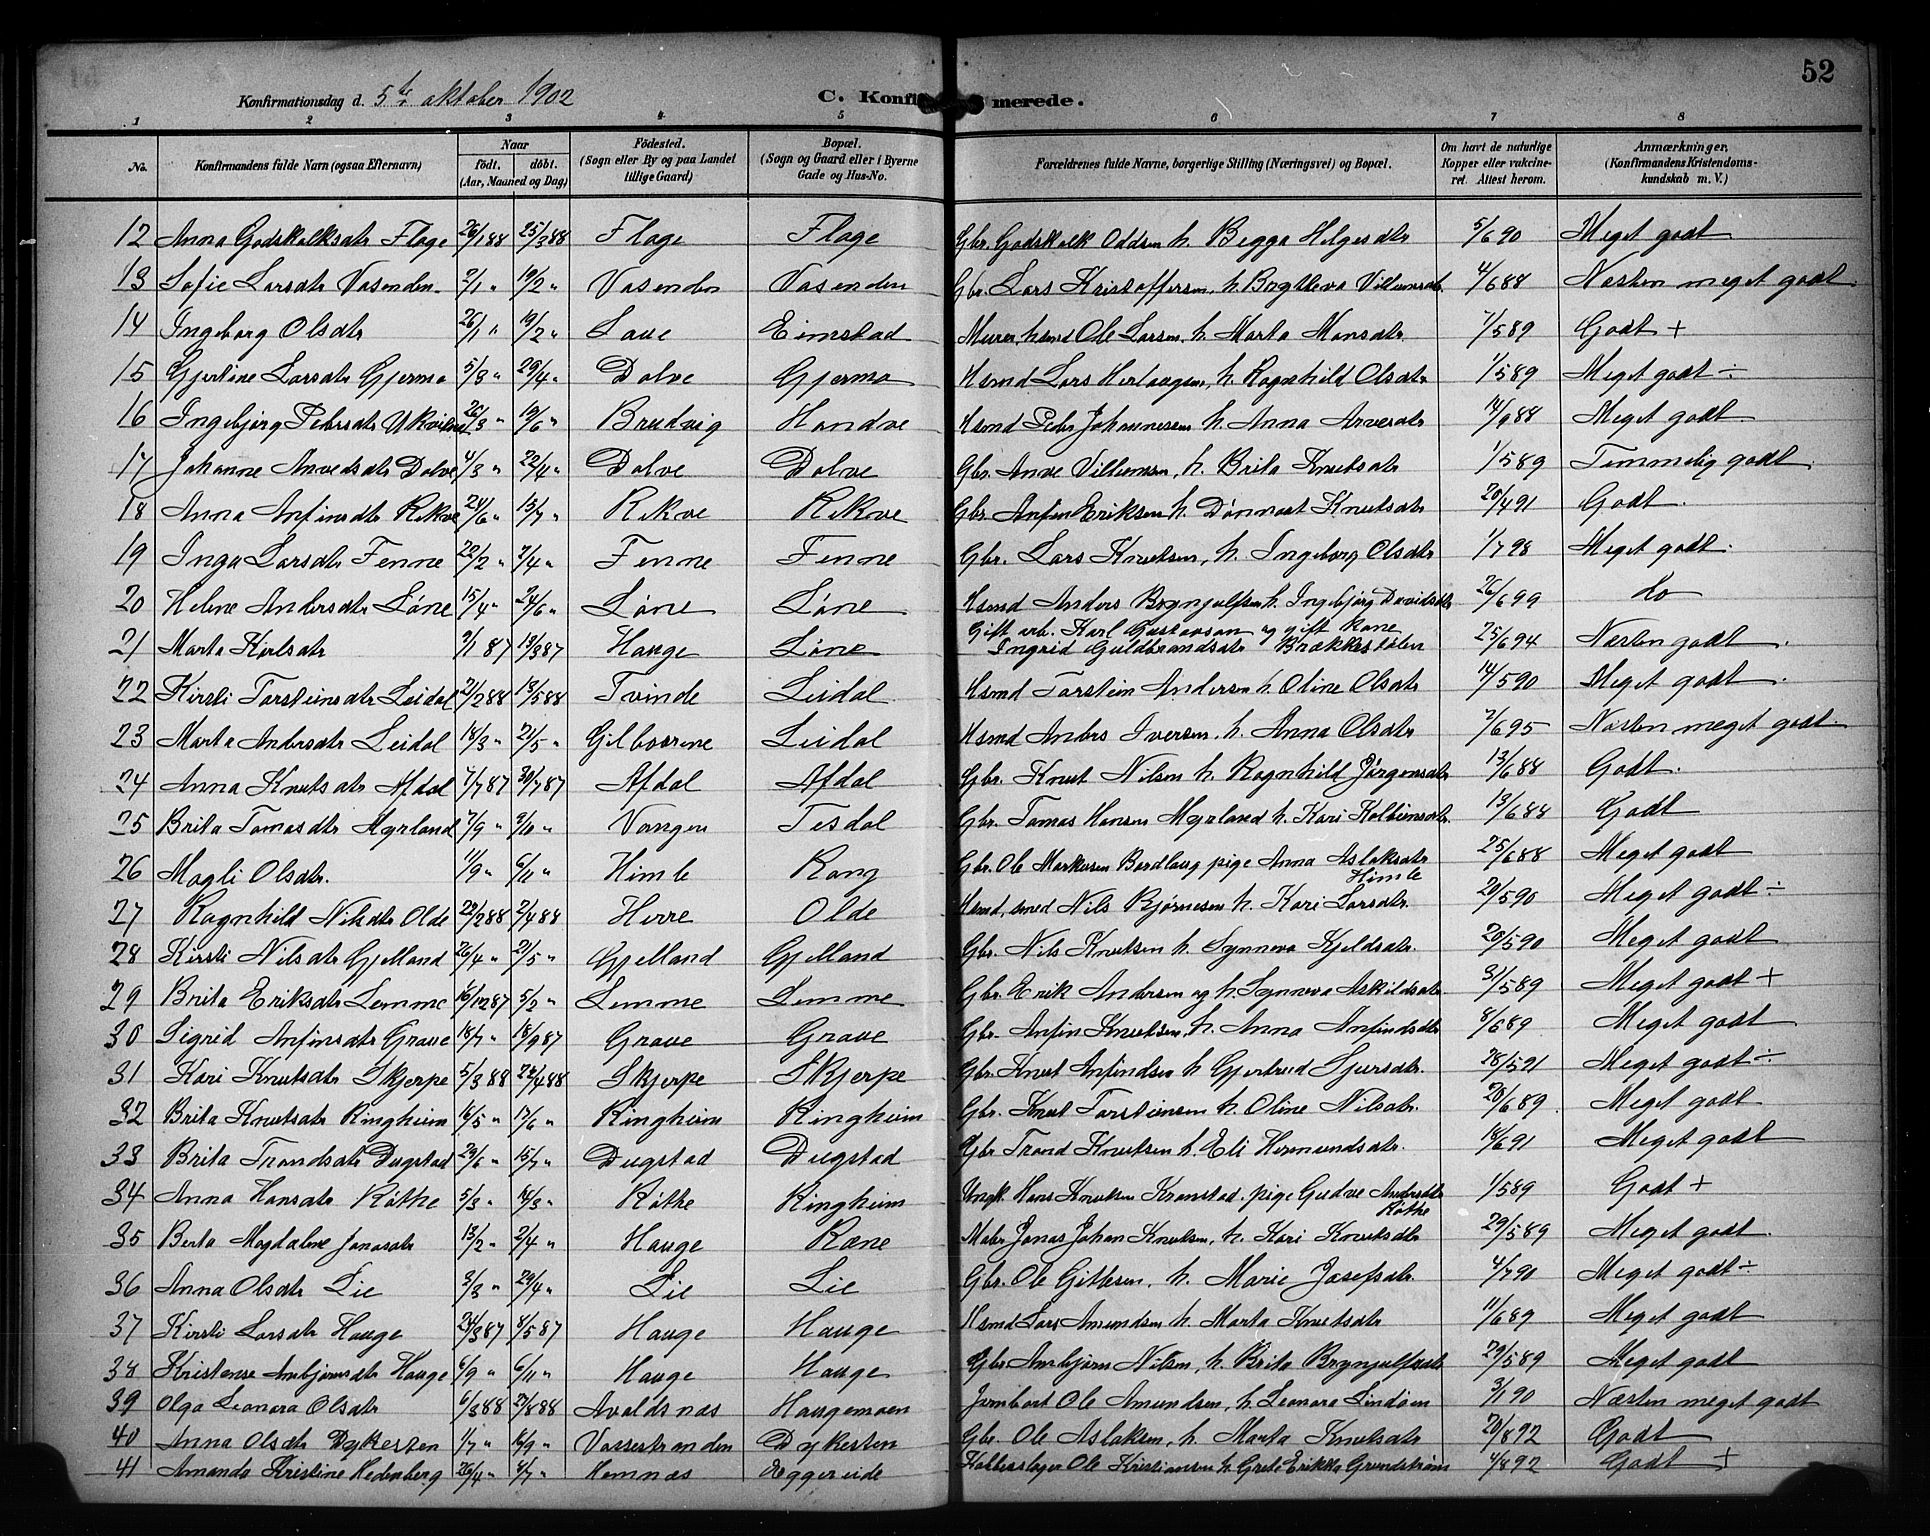 52
Konfirmationsdag d. 5te oktober 1902
C. Konfirmerede.
1 2 3 4 5 6 7 8
No. Konfirmandens fulde Navn (ogsaa Efternavn) Naar født. døbt. (Aar, Maaned og Dag) Fødested. (Sogn eller By og paa Landet tillige Gaard) Bopæl. (Sogn og Gaard eller i Byerne Gade og Hus-No. Forældrenes fulde Navne, borgerlige Stilling (Næringsvei) og Bopæl. Om havt de naturlige Kopper eller vakcineret. Attest herom. Anmærkninger, (Konfirmandens Kristendomskundskab m. V.)
12 Anna Godskalksdtr Flage 26/188 25/388 Flage Flage Gbr. Godskalk Oddsen h. Begga Helgesdtr 5/690 Meget godt
13 Sofie Larsdtr Vasenden 2/1 " 19/2 " Vasenden Vasenden Gbr. Lars Kristoffersen, h. 4/688 Næsten meget godt.
14 Ingeborg Olsdtr 26/1 " 19/2 " Saue Eimstad Murer, hsmd Ole Larsen, h. Marta Monsdtr. 7/589 Godt +
15 Gjertine Larsdtr Gjerme 5/3 " 29/4 " Dolve Gjerme Hsmd Lars Herlaugsen, h. Ragnhild Olsdtr 1/589 Meget godt ÷
16 Ingebjørg Pedersdtr 19/6 " Brudvig Handve Hsmd Peder Johannesen h. Anna Arvesdtr 14/988 Meget godt.
17 Johanne Anvedsdtr Dolve 4/3 " 22/4 " Dolve Dolve Gbr. Anve Villumsen, h. Brita Knutsdtr 1/589 Temmelig godt.
18 Anna Anfinsdtr Rekve 24/6 " 15/7 " Rekve Rekve Gbr. Anfin Eriksen h. Knutsdtr 20/491 Godt.
19 Inga Larsdtr Fenne 22/2 " 2/4 " Fenne Fenne Gbr. Lars Knutsen, h. Ingeborg Olsdtr 1/798 Meget godt.
20 Helene Andersdtr Løne 15/4 " 24/6 " Løne Løne Hsmd Anders Brynjulfsen h. Ingebjørg Davidsdtr 26/699 do
21 Marta Karlsdtr 2/1 87 13/387 Hauge Løne Gift arb. Karl Gustavson og gift kone
Ingrid Guldbrandsdtr Brækkestølen 25/694 Næsten godt.
22 Kirsti Torsteinsdtr Leidal 21/288 13/588 Tvinde Leidal Hsmd Torstein Andersen h. Oline Olsdtr 14/590 Meget godt.
23 Marta Andersdtr Leidal 18/3 " 21/5 " Leidal Hsmd Anders Iversen, h. Anna Olsdtr 2/695 Næsten meget godt.
24 Anna Knutsdtr Afdal 7/787 30/787 Afdal Afdal Gbr. Knut Nilsen h. Ragnhild Jørgensdtr 13/688 Godt.
25 Brita Tomasdtr Myrland 7/9 " 2/10 " Vangen Tesdal Gbr. Tomas Hansen Myrland h. Kari Kolbeinsdtr. 13/688 Godt
26 Magli Olsdtr. 11/9 " 6/11 " Himle Rong Gbr. Ole Markusen Bordlaug pige Anna Aslaksdtr
Himle 25/688 Meget godt
27 Ragnhild Nilsdtr Olde 22/288 2/488 Herre Olde Hsmd, smed Nils Bjørnesen h. Kari Larsdtr. 20/590 Meget godt ÷
28 Kirsti Nilsdtr Gjelland 26/4 " 21/5 " Gjelland Gjelland Gbr. Nils Knutsen h. Synneva Kjeldsdtr. 20/590 Meget godt
29 Brita Eriksdtr Lemme 16/1287 5/2 " Lemme Lemme Gbr. Erik Andersen og h. Synneva Askildsdtr 31/589 Meget godt +
30 Sigrid Anfinsdtr Grave 18/7 " 18/987 Grave Grave Gbr. Anfin Knutsen, h. Anna Anfindsdtr 8/689 Meget godt
31 Kari Knutsdtr Skjerpe 5/388 22/488 Skjerpe Skjerpe Gbr. Knut Anfindsen h Gjertrud Sjursdtr. 28/591 Meget godt ÷
32 Brita Knutsdtr Ringheim 16/5 " 17/6 " Ringheim Ringheim Gbr. Knut Torsteinsen h. Oline Nilsdtr. 20/689. Meget godt
33 Brita Trondsdtr Dugstad 29/6 " 15/7 " Dugstad Dugstad Gbr Trond Knutsen h. Eli Hermundsdtr. 14/691 Meget godt
34 Anna Hansdtr Røthe 5/3 " 14/3 " Røthe Ringheim Ungk. Hans Knutsen Kronstad. pige Gudve Andersdtr
Røthe 1/589 Godt +
35 Berta Magdalene Jonasdtr 13/2 " 2/4 " Hauge Rene Jonas Johan Knutsen, h. Kari Knutsdtr 29/589 Meget godt.
36 Anna Olsdtr Lie 3/3 " 29/4 " Lie Lie Gbr. Ole Gittesen, h. Marie Josefsdtr. 4/790 Meget godt ÷
37 Kirsti Larsdtr Hauge 24/387 8/587 Hauge Hauge Hsmd Lars Amundsen h. Marta Knutsdtr 11/689 Meget godt
38 Kristense Anbjørnsdtr Hauge 6/9 " 6/11 " Hauge Hauge Gbr Anbjørn Nilsen, h. Brita Brynjulfsdtr 29/589 Meget godt
39 Olga Leonora Olsdtr 6/388 21/888 Avaldsnæs Haugemoen Ole Amundsen, h. Leonora 3/190 Næsten meget godt
40 Anna Olsdtr Dykesten 1/7 " 16/9 " Vossestranden Dykesten Gbr. Ole Aslaksen, h. Marta Knutsdtr 20/892 Godt
41 Amanda Kristine Hedenberg 26/4 " 4/7 " Hemnæs Æggereide Ole Kristiansen h. Grete Erikka Grundstrøm 4/892 Godt +